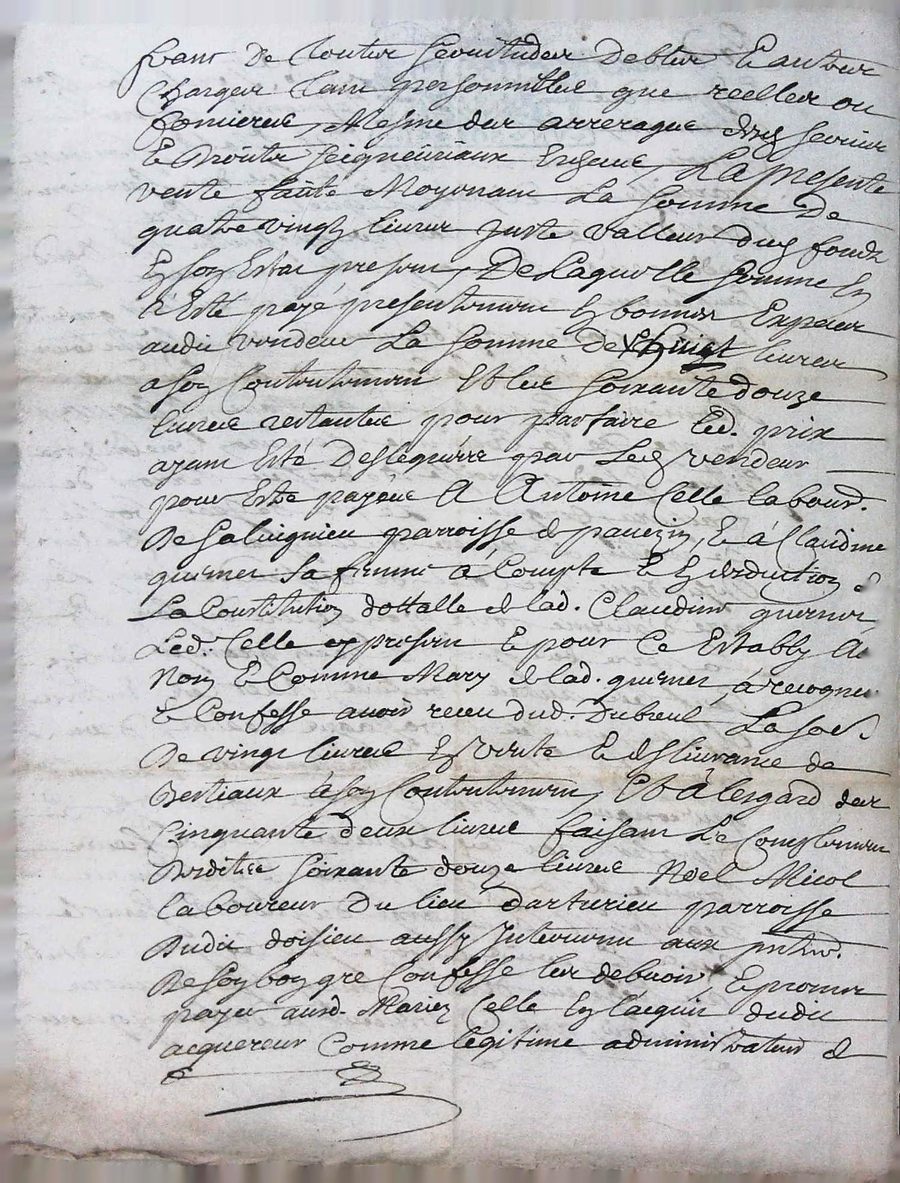 franc de touttes servitudes debtes et autres
charges tant personnelles que reelles ou
foncieres, Mesme des arrerages des servis
et Droits seigneuriaux La presente
vente faitte Moyenant La somme de
quatre vingtz livres juste valleur dud fonds
En son Estat present, De laquelle somme En
a Esté payé presentement En bonnes Especes
audit vendeur La somme de huict livres
a son Contentement Et les soixante douze
livres restantes pour parfaire Led. prix
ayant Esté par Led vendeur
pour Estre payées A Antoine Celle labour.
De parroisse de pavezin, Et à Claudine
sa femme à Compte Et En deduction de
La Constitution dottalle de lad. Claudine
Led. Celle cy present Et pour Ce Estably Au
Nom Et Comme Mary de lad. à recogneu
Et Confesse avoir receu dud. Dubreul La so.
De vingt livres En vente Et deslivrance de
bestiaux à son Contentement, Et à lesgard des
Cinquante deux livres faisant Le Complement
Desdittes soixante douze livres Noel Micol
laboureur Du lieu parroisse
Dudit doisieu aussy Intervenu aux pntes.
De son bon gre Confesse les debvoir, Et promet
payer ausd. Mariez Celle En lacquit dudit
acquereur Comme legitime administrateur de